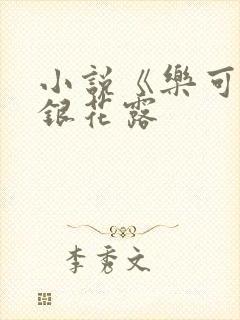 小說《樂可
銀花露
李秀文